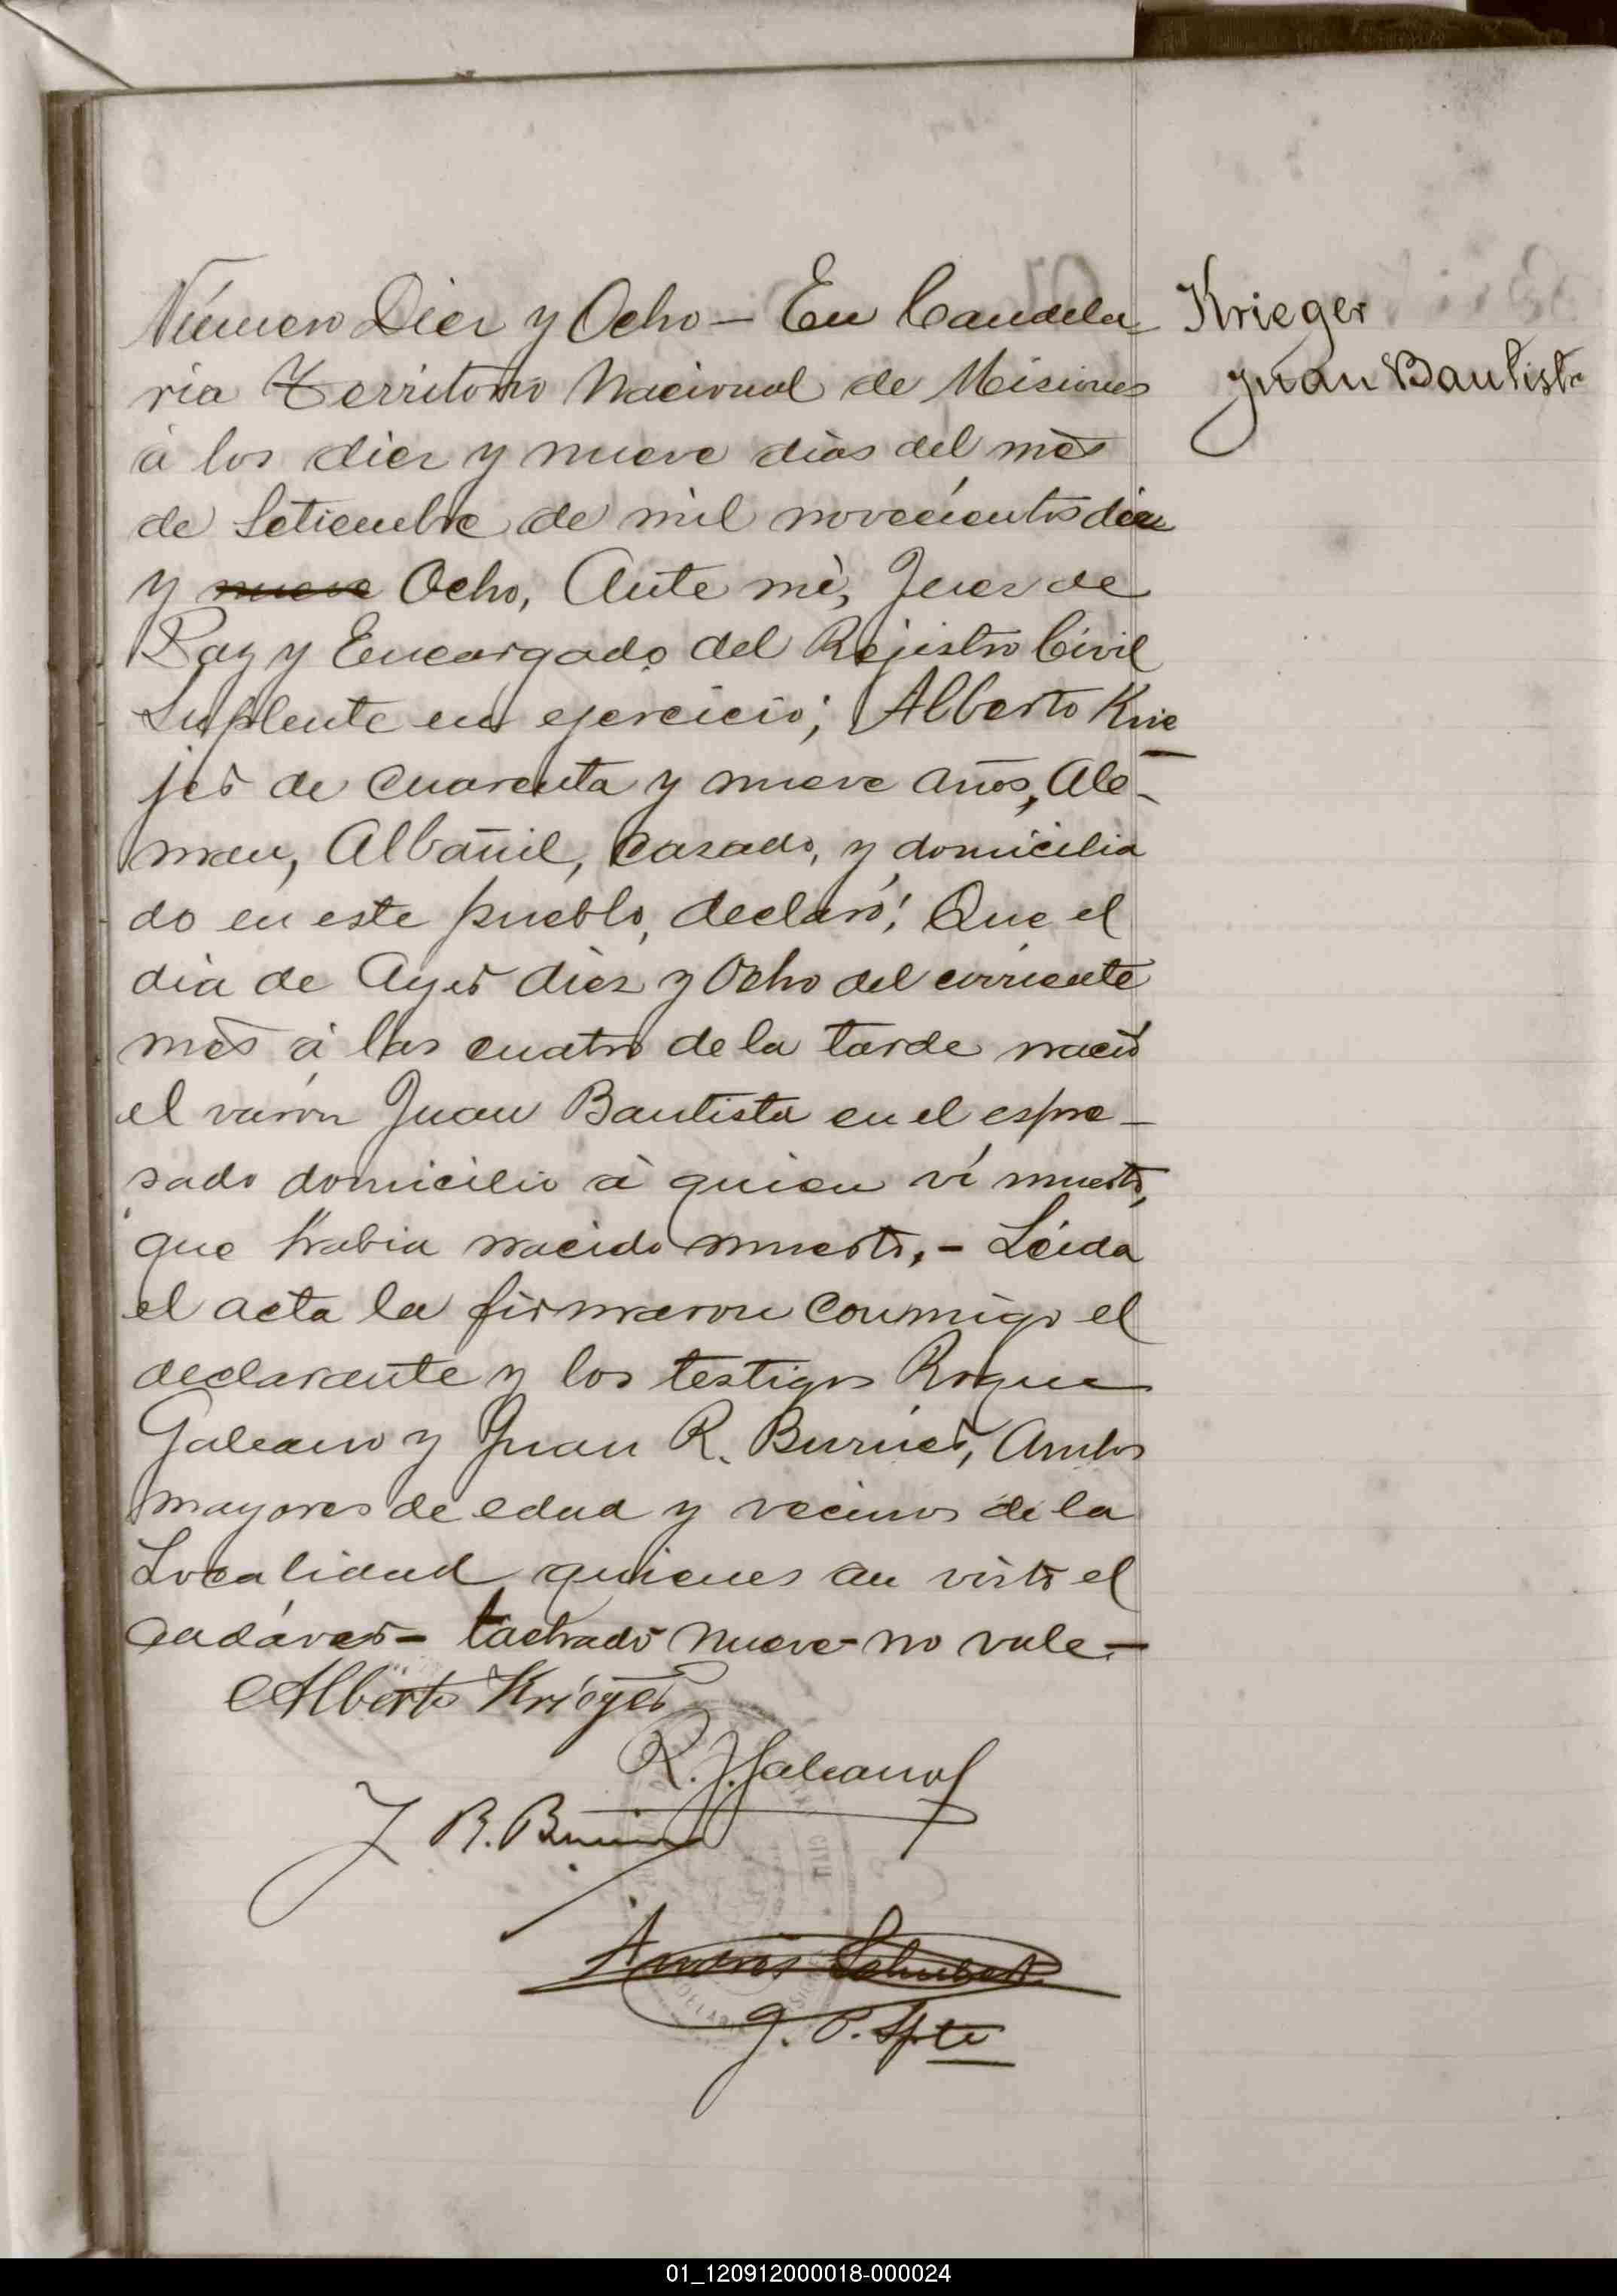 Número Diez y Ocho — En Candela-
ria Territorio Nacional de Misiones
á los diez y nueve dias del mès
de Setiembre de mil novecientos diez
y nueve Ocho, Ante mi, Juez de
Paz y Encargado del Rejistro Civil
Suplente en ejercicio; Alberto Krie
jer de cuarenta y nueve años, Ale-
man, Albañil, casado, y domicilia
do en este pueblo, declaró: Que el
dia de Ayer diez y Ocho del corriente
mes á las cuatro de la tarde nació
el varon Juan Bautista en el espre-
sado domicilio á quien ví muerto,
que habia nacido muerto.- Leida
el acta la firmaron conmigo el
declarante y los testigos Roque
Galeano y Juan R. , Ambos
mayores de edad y vecinos de la
Localidad quienes an visto el
cadáver- tachado nueve-no vale.-
Krieger
Juan Bautista
Alberto Krieger
R. J. Galeano
J R.
Schubert
J. P. Spte
01_120912000018-000024